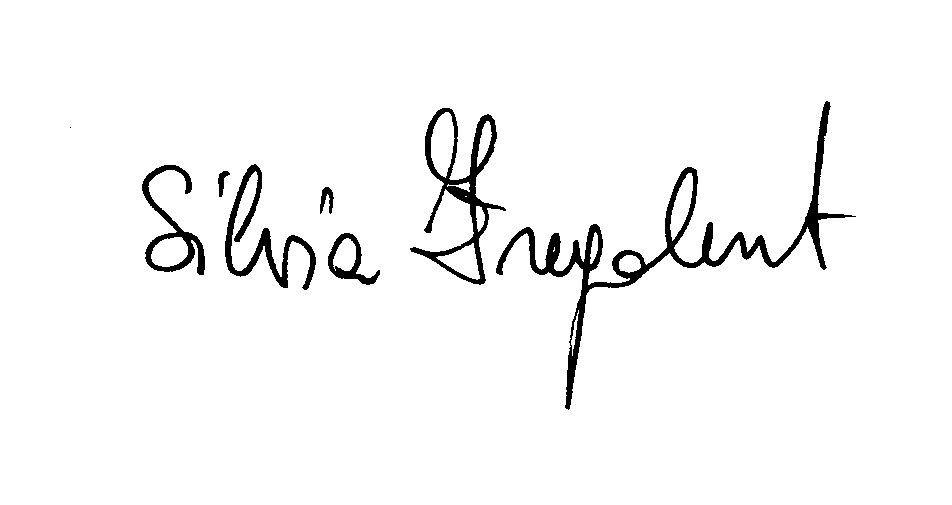 Silvia Fregolent